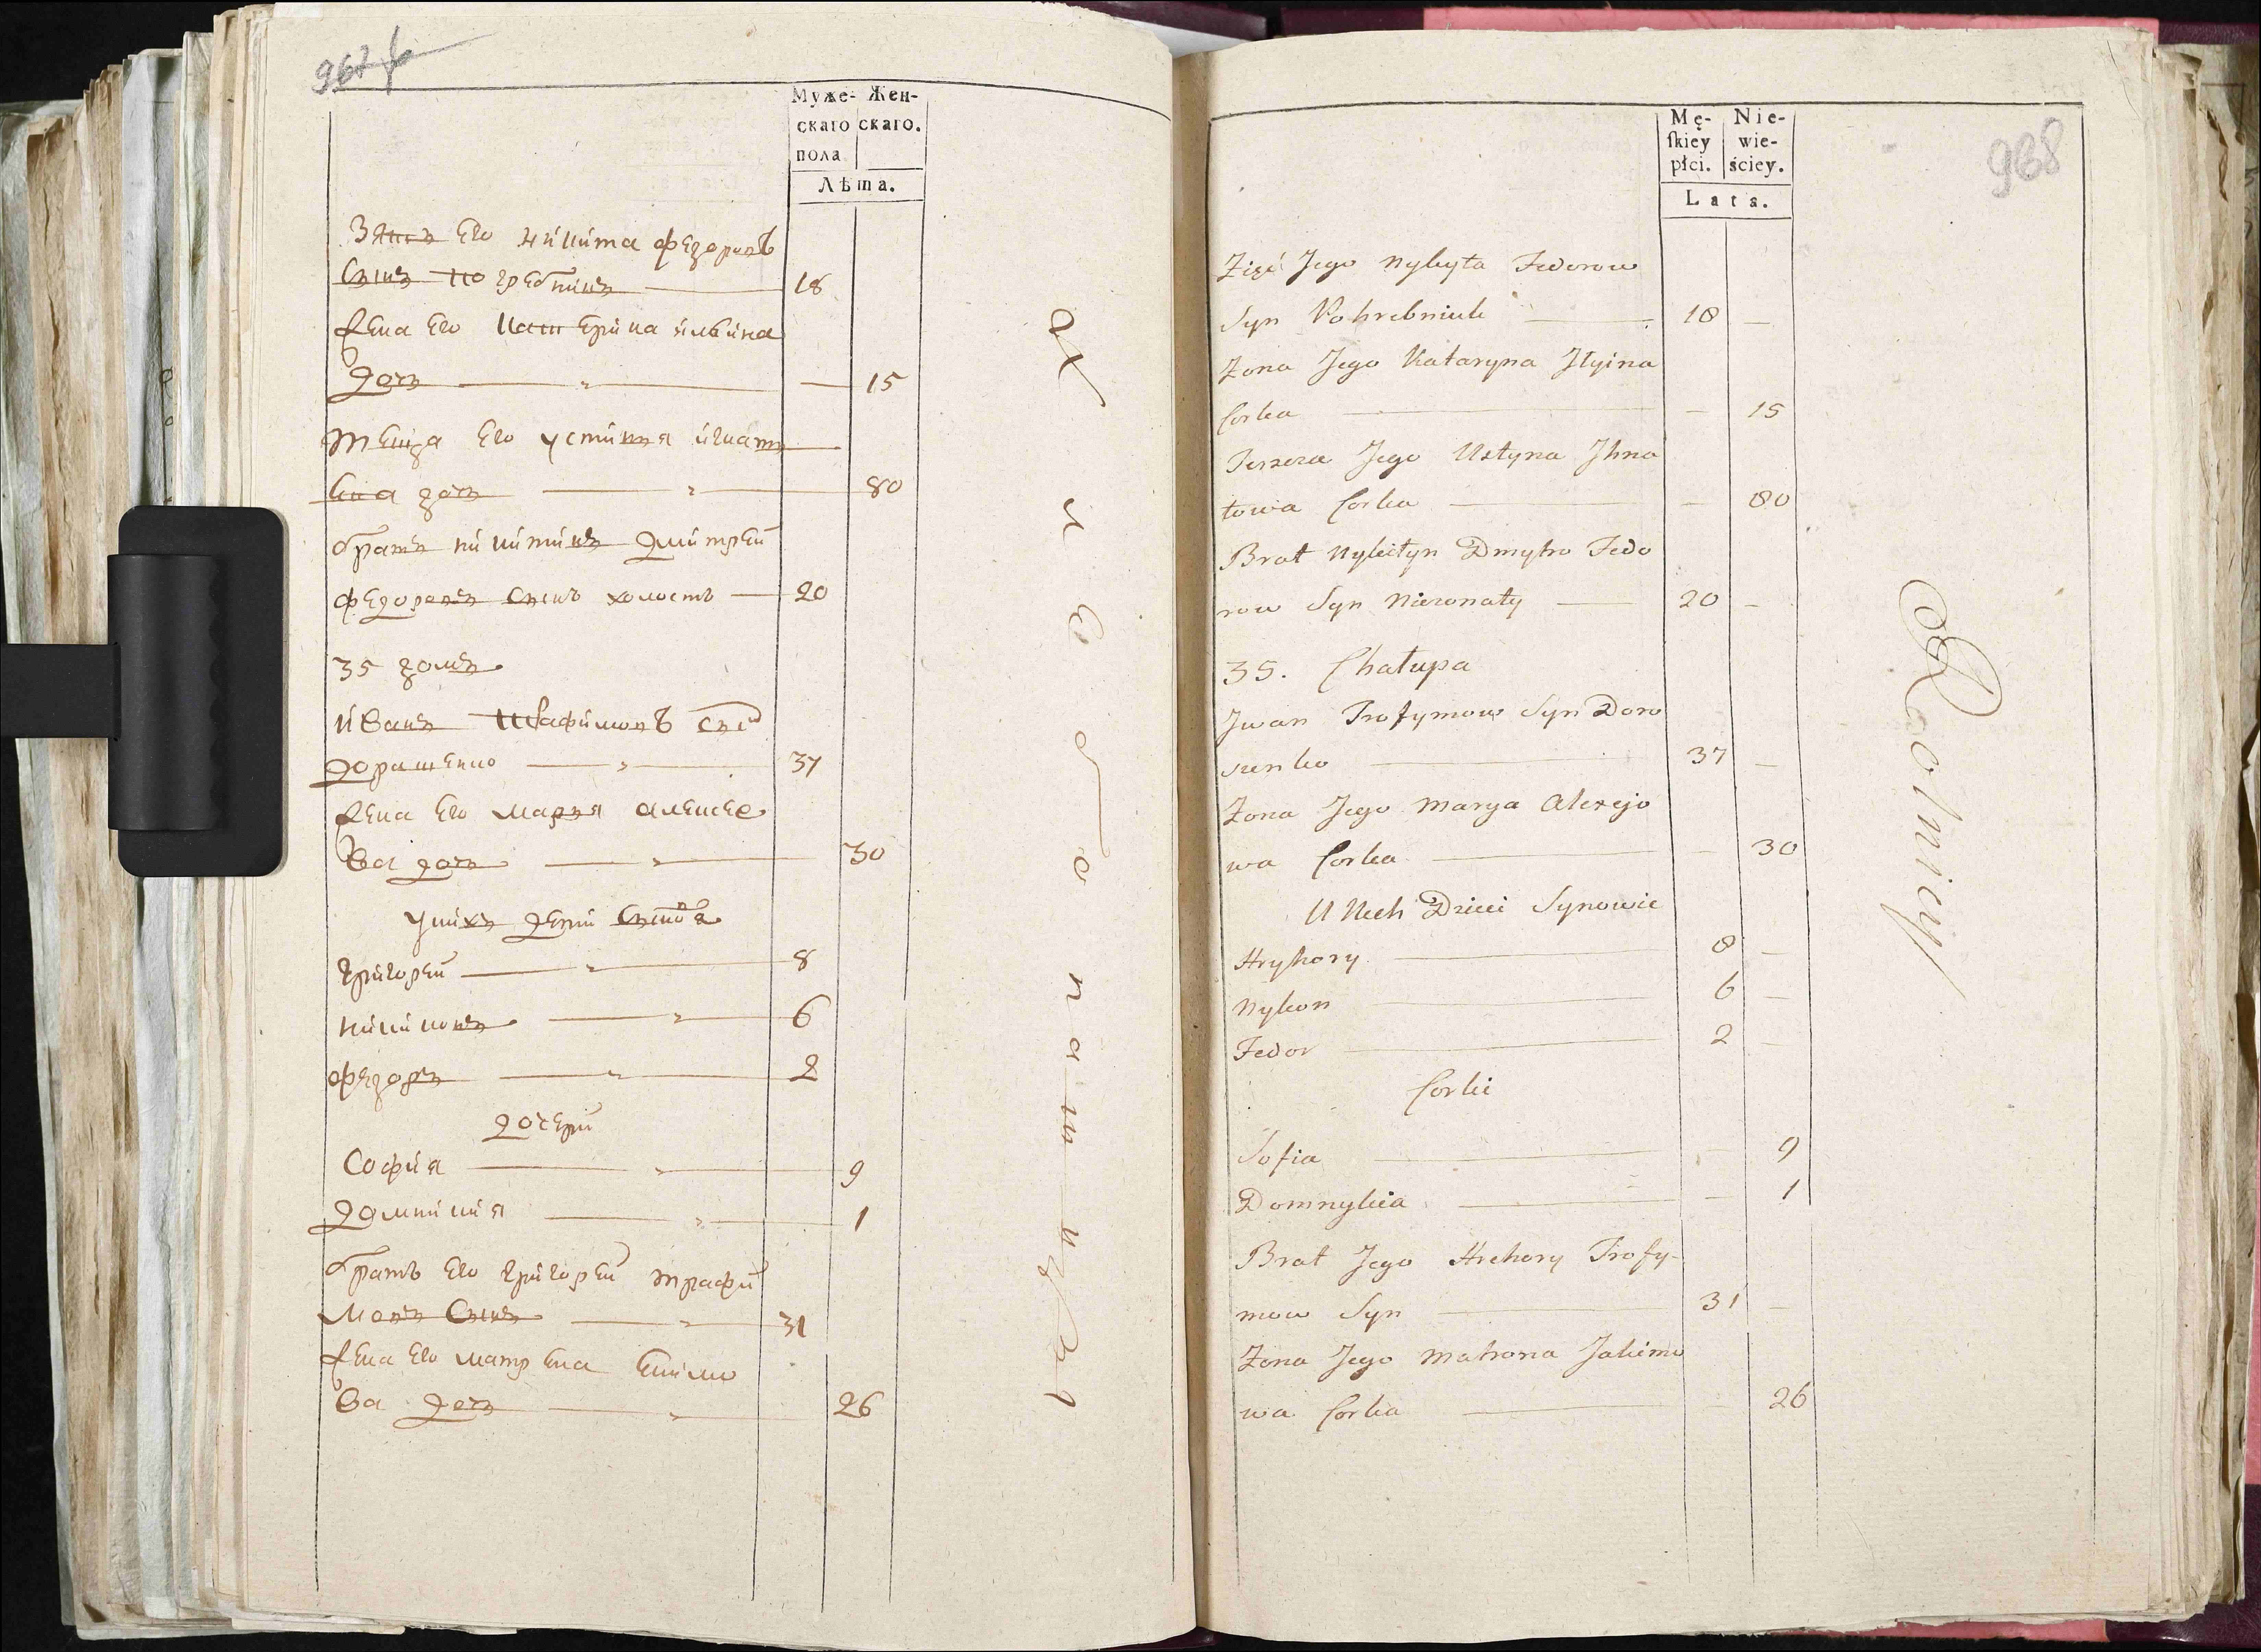 Муже- Жен-
скаго скаго.
пола
Лѣта.
Зять Его никита федоровъ
Сынъ погребникъ 18
жена Его катерина илвина
дочь 15
теща Его устиня игнать
Ева дочь 80
братъ никитинъ дмитреи
федоровъ Сынъ холостъ 20
35 домъ
иванъ трафимовъ сынъ
дорашенко 37
жена Его маря алексее
ва дочь 30
у нихъ дети Сыновя
григореи 8
никконъ 6
федоръ 2
дочери
София 9
домникия 1
братъ Его григореи трафи
мовъ Сынъ 31
жена Его матрена Екимо
ва дочь 26
хлебопашцы
Mę- Nie-
skiey wie-
płci. ściey.
Lata.
988
Zięć Jego Nykyta Fedorow
Syn Pohrebniuk 18
Żona Jego Kataryna Jłyina
Corka 15
Teszcza Jego Ustyna Jhna
towa Corka 80
Brat Nykityn Dmytro Fedo
row Syn Nieżonaty 20
35. Chałupa
Jwan Trofymow Syn Doro
szenko 37
Żona Jego Marya Alexejo
wa Corka 30
U Nich Dzieci Synowie
Hryhory 8
Nykon 6
Fedor 2
Corki
Sofia 9
Domnykia 1
Brat Jego Hrehory Trofy-
mow Syn 31
Żona Jego Matrona Jakimo
wa Corka 26
Rolnicy